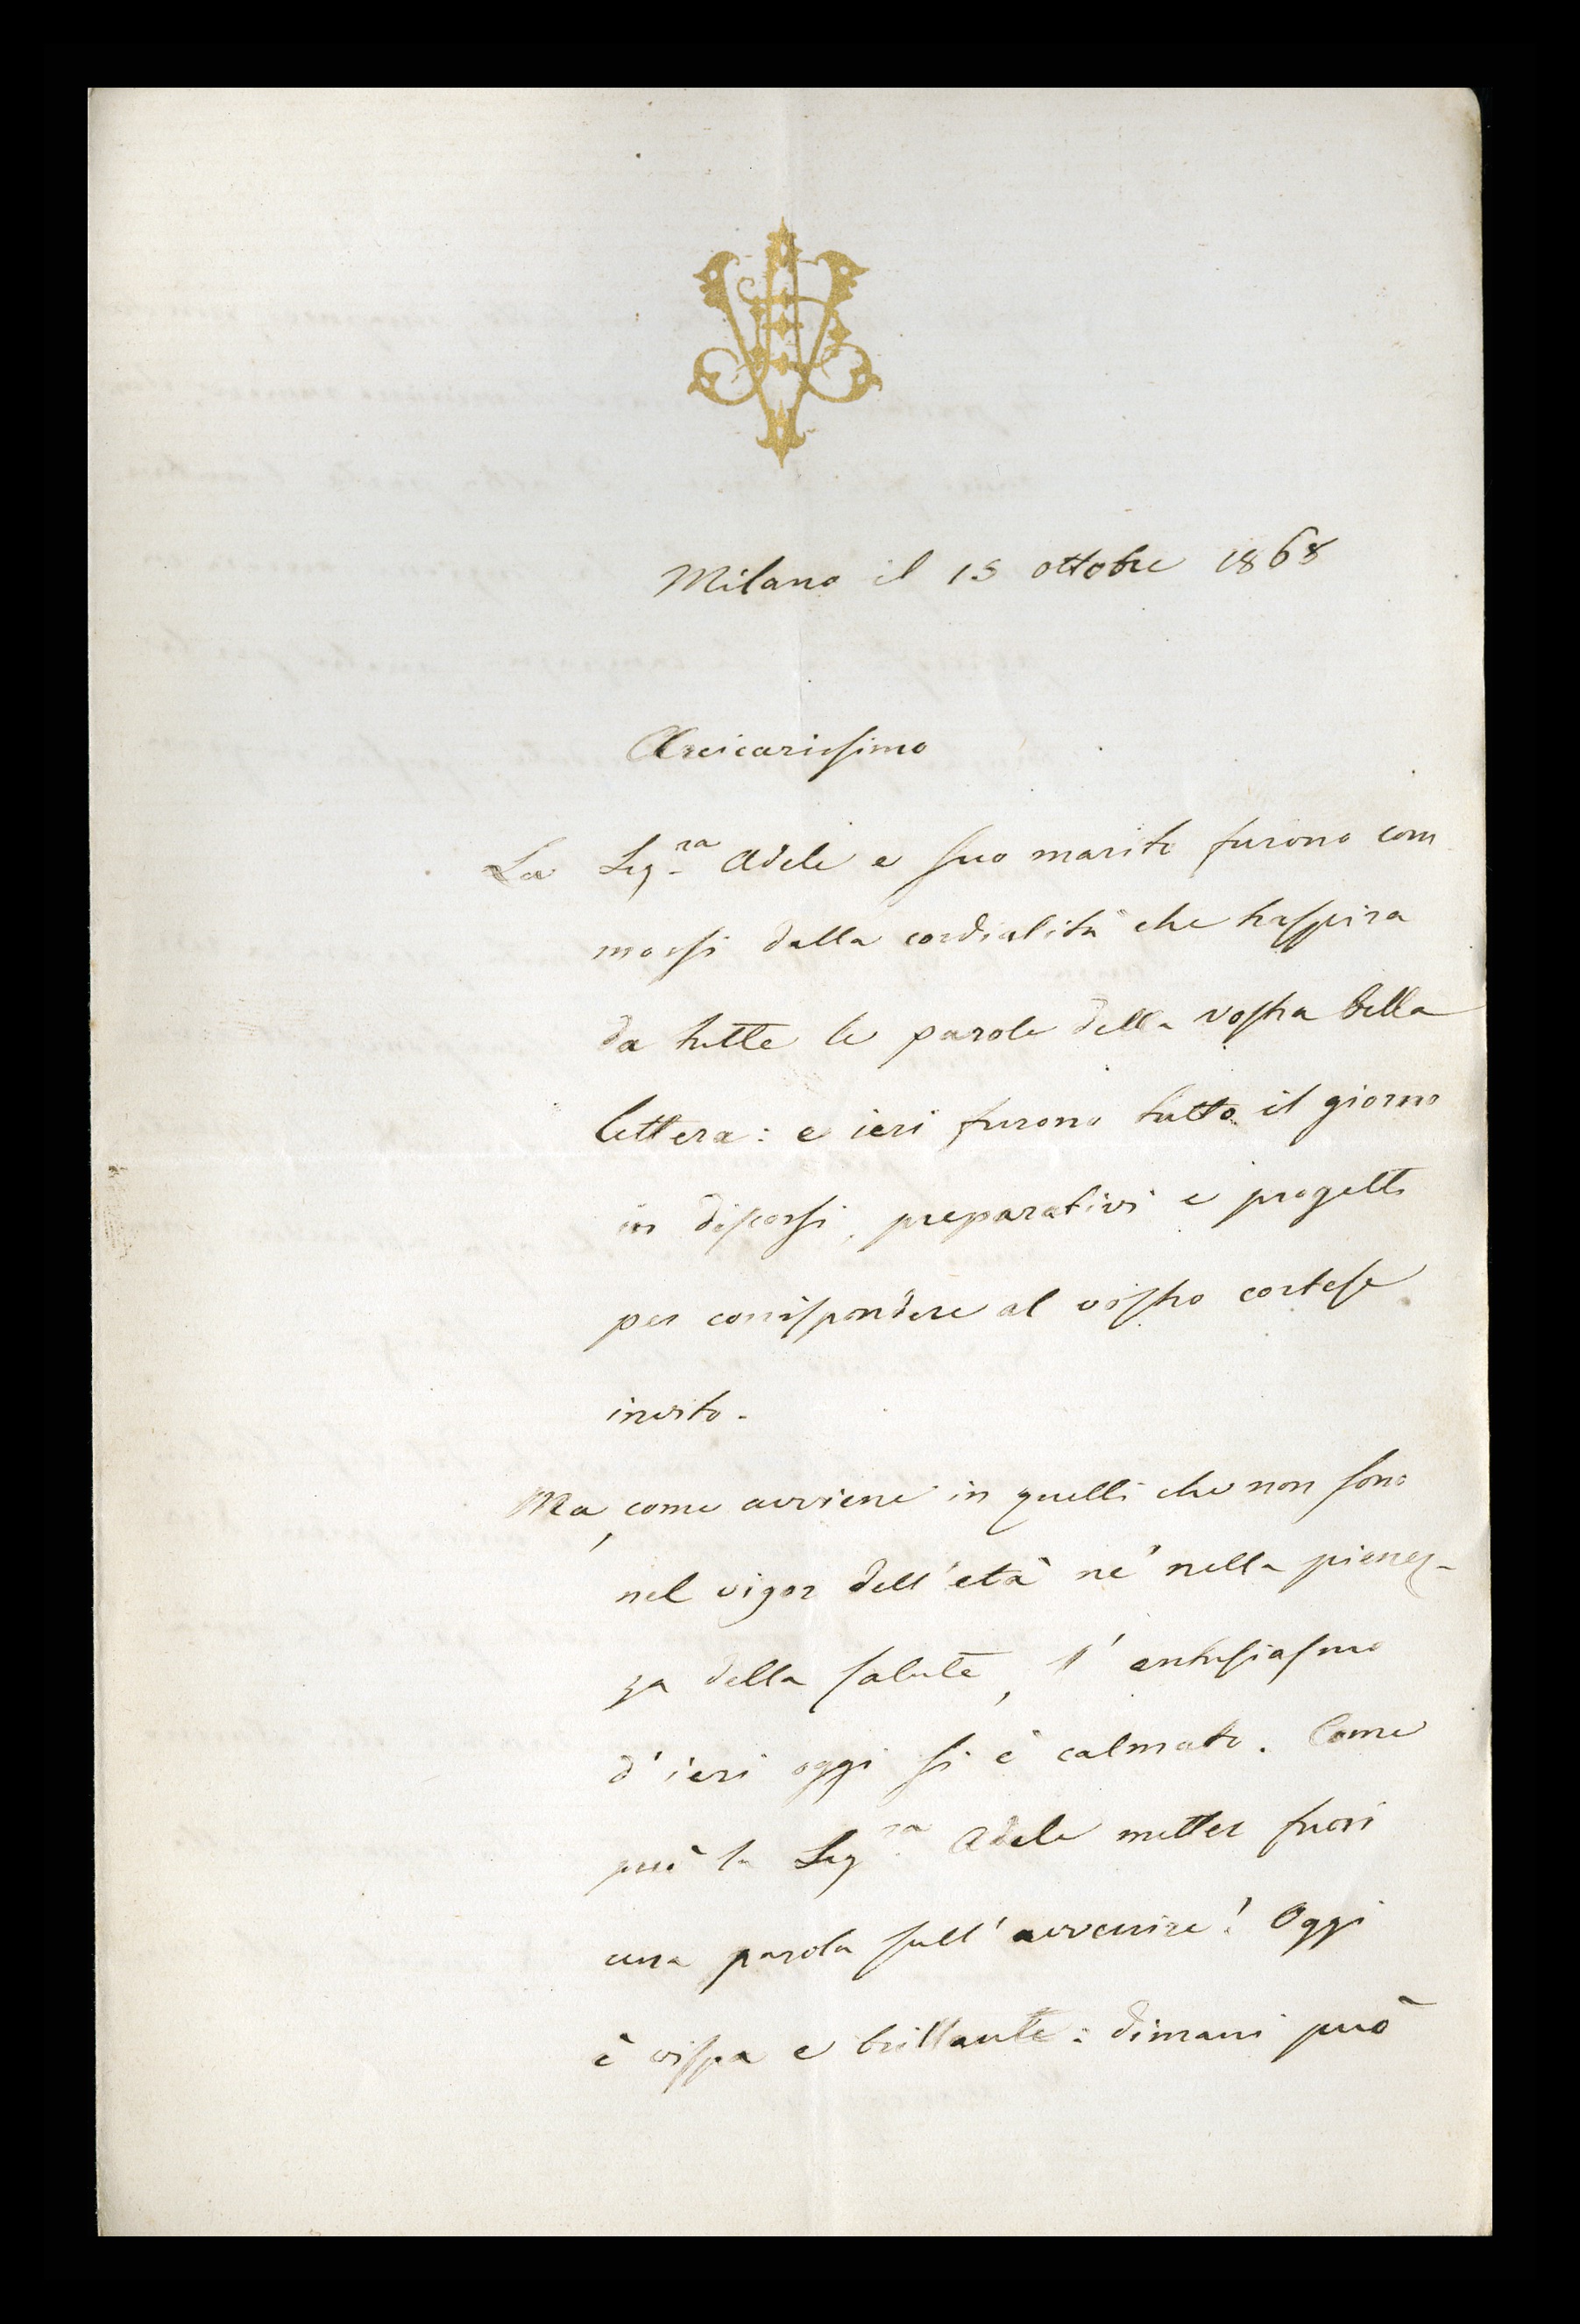 Milano il 15 ottobre 1868
Arcicarissimo
La Sigra Adele e suo marito furono com
mossi dalla cordialità che traspira
da tutte le parole della vostra bella
lettera: e ieri furono tutto il giorno
in discorsi, preparativi e progetti
per corrispondere al vostro cortese
invito.
Ma, come avviene in quelli che non sono
nel vigor dell'età nè nella pienez-
za della salute, l'entusiasmo
d'ieri oggi si è calmato. Come
può la Sigra Adele metter fuori
una parola sull'avvenire! Oggi
è vispa e brillante: dimani può